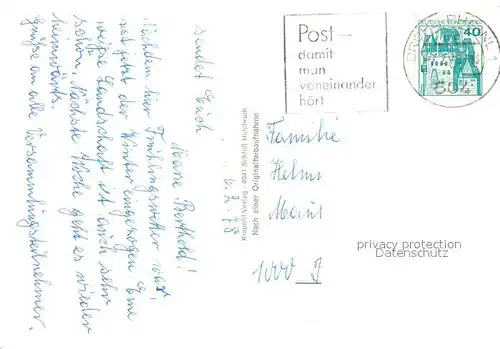 Meine Berthold!
Nachdem hier Frühlingswetter war,
ist jetzt der Winter eingezogen. Eine
weiße Landschaft ist auch sehr
schön. Nächste Woche geht es wieder
heimwärts.
Grüße an alle Versammlungsteilnehmer.
sendet Euch
Krapohl-Verlag · 4041 Schloß Hülchrath
Nach einer Originalfarbaufnahme
Post –
damit
man
voneinander
hört
DEUTSCHE BUNDESPOST
40
Familie
Helmi
Maul
1000
privacy protection
Datenschutz